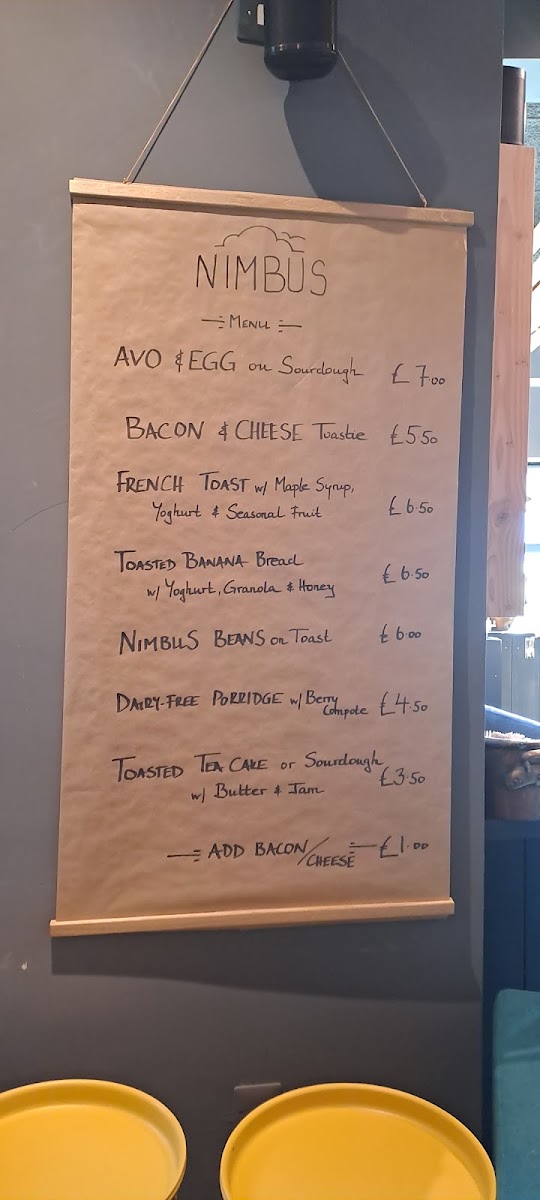 NIMBUS
MENU
AVO & EGG on Sourdough £7.00
BACON & CHEESE Toastie £5.50
FRENCH TOAST w/ Maple Syrup,
Yoghurt & Seasonal Fruit £6.50
TOASTED BANANA Bread
w/ Yoghurt, Granola & Honey £6.50
NIMBUS BEANS on Toast £6.00
DAIRY-FREE PORRIDGE w/ Berry
Compote £4.50
TOASTED TEA CAKE or Sourdough
w/ Butter & Jam £3.50
ADD BACON/CHEESE £1.00